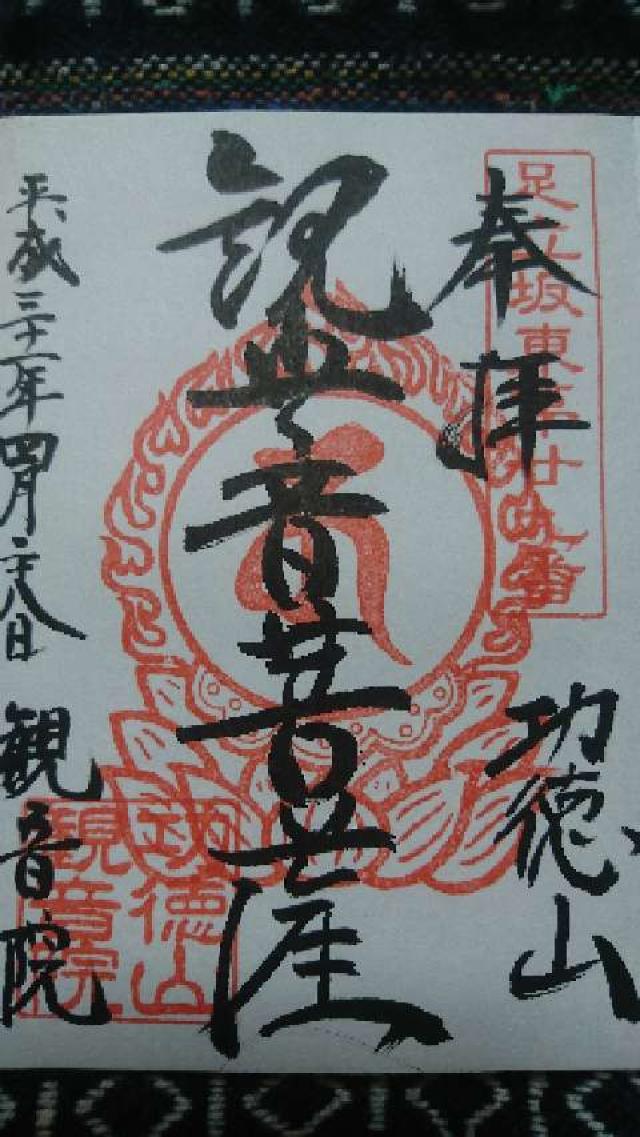 足立坂東 廿九番
奉拝
功徳山
観世音菩薩
平成三十一年四月二十八日
観音院
功徳山
観音院